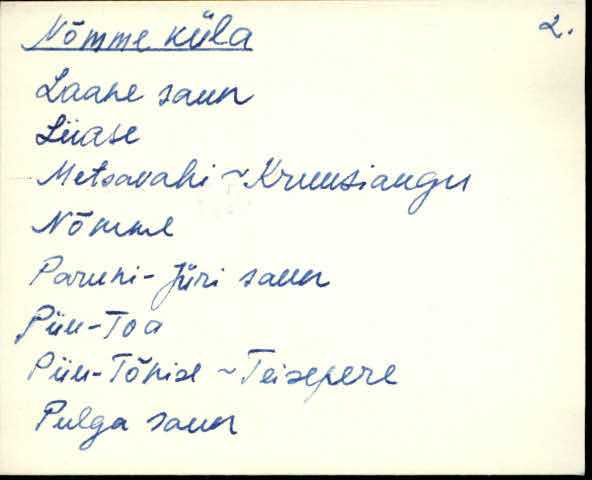 Nõmme küla 2.
Laane saun
Liiase
Metsavahi ~ Kruusiaugu
Nõmme
Paruni-Jüri saun
Piiu-Toa
Piiu-Tõnise ~ Teisepere
Pulga saun